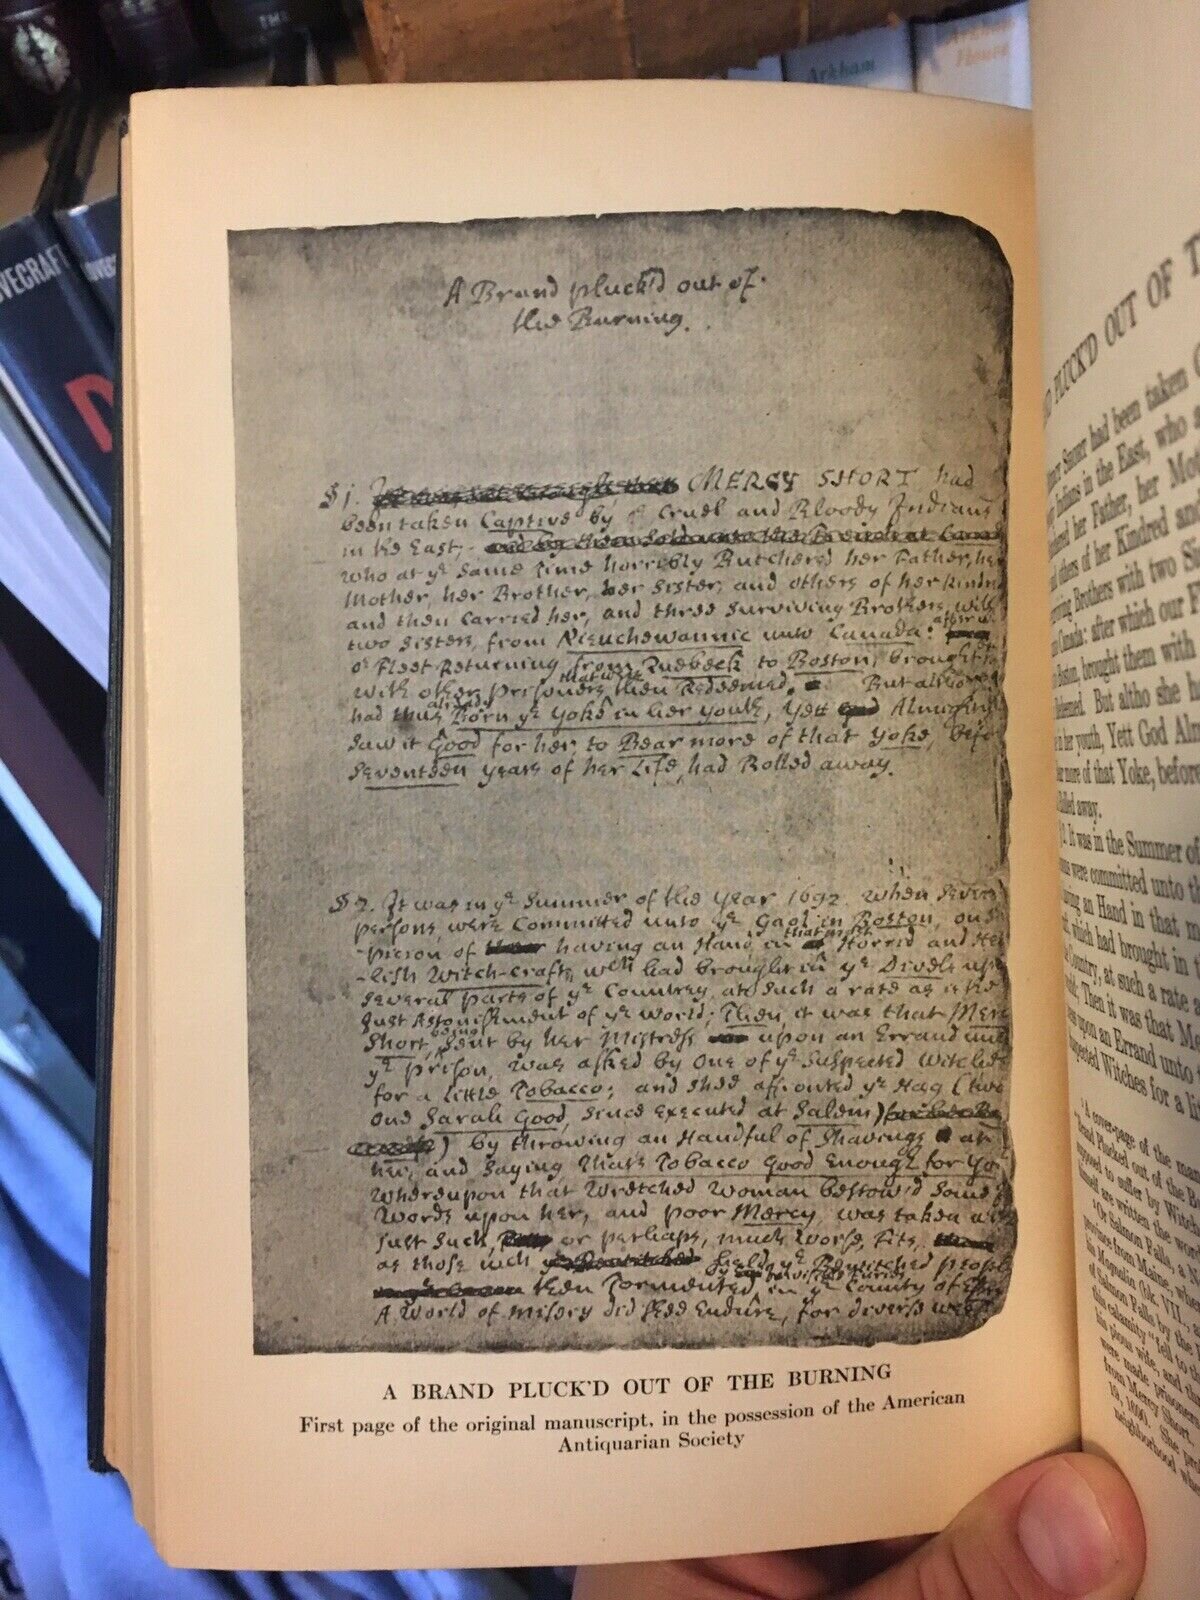 OVECRAFT
Arkham
Arkham
House
A Brand pluck'd out of
the Burning.
§ 1. MERCY SHORT had
been taken Captive by yᵉ Cruel and Bloody Indians
in the East,
who at yᵉ same Time horribly Butchered her Father, her
Mother, her Brother, her Sister, and others of her Kindred
and then Carried her, and three surviving Brothers with
two Sisters, from Nieuchewannic unto Canada: after wᶜ
oʳ Fleet Returning from Quebeck to Boston, brought
with other Prisoners that were then Redeemed. But altho
had thus already Born yᵉ Yoke in her youth, Yett Almigh
saw it Good for her to Bear more of that Yoke, before
seventeen years of her Life, had Rolled away.
§ 2. It was in yᵉ Summer of the Year 1692. when Several
persons, were Committed unto yᵉ Gaol in Boston, on
-picion of having an Hand in that most Horrid and Hel
-lish Witch-craft, wᶜʰ had brought in yᵉ Divels upon
several parts of yᵉ Country, at such a rate as is the
just Astonishment of yᵉ world; Then it was that Mercy
Short, being sent by her Mistress upon an Errand unto
yᵉ prison, was asked by One of yᵉ Suspected Witches
for a little Tobacco; and shee affronted yᵉ Hag (twas
one Sarah Good, since Executed at Salem)
by throwing an Handful of Shavings at
her, and saying Thats Tobacco Good Enough for you
Whereupon that Wretched Woman bestow'd some
Words upon her, and poor Mercy was taken with
just such, or perhaps, much Worse, Fits,
as those wᶜʰ held yᵉ Bewitched people
then Tormented by Invisible Furies in yᵉ County of Essex
A World of misery did shee Endure, for diverse weeks
A BRAND PLUCK'D OUT OF THE BURNING
First page of the original manuscript, in the possession of the American
Antiquarian Society
PLUCK'D OUT OF T
Short had been taken
Indians in the East, who
her Father, her Mot
others of her Kindred an
Brothers with two Si
Canada: after which our F
Boston, brought them with
But altho she h
in her youth, Yett God Alm
more of that Yoke, before
away.
2. It was in the Summer of
were committed unto th
an Hand in that m
which had brought in t
Country, at such a rate a
Then it was that Me
upon an Errand unto t
Witches for a li
A cover-page of the man
Plucked out of the B
to suffer by Witch
are written the wor
Or Salmon Falls, a N
from Maine, whe
his Magnalia (bk. VII.,
of Salmon Falls by the
this calamity "fell to th
his pious wife, and th
were made prisoner
from Mercy Short.
neighborhood whe